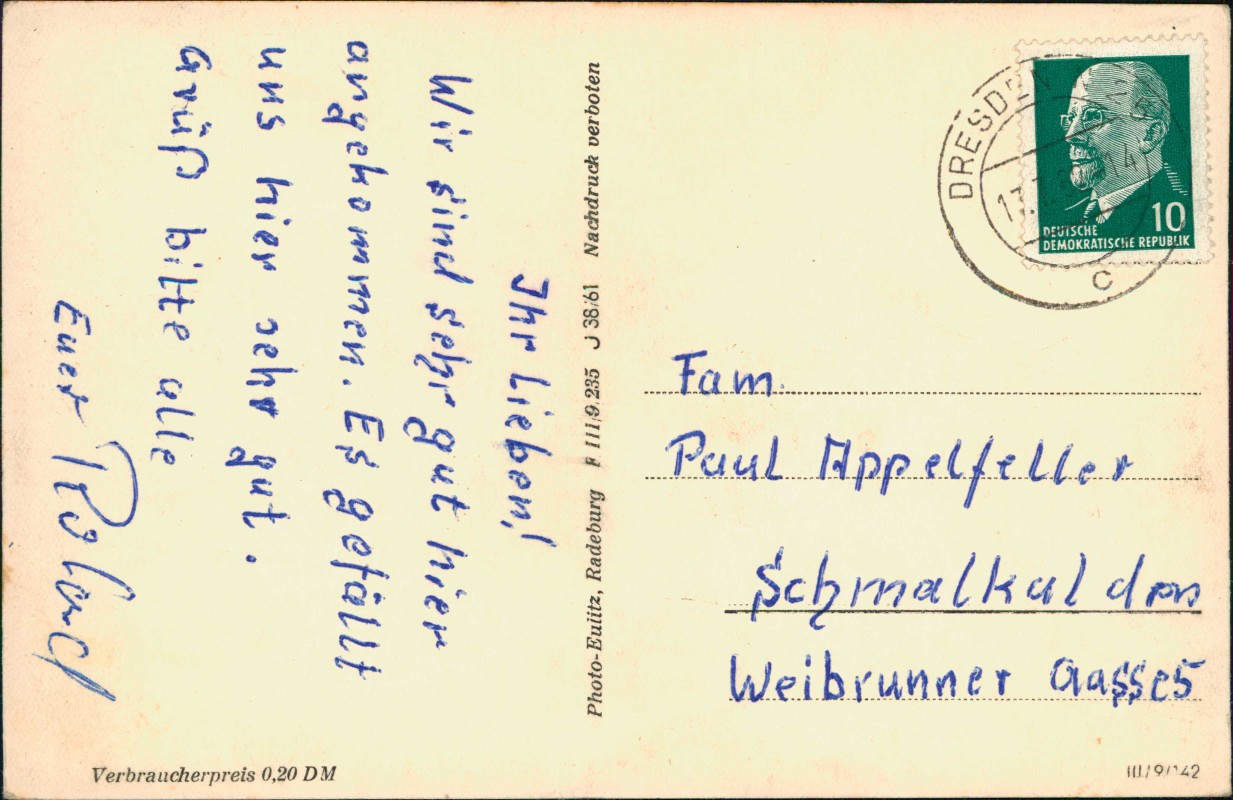 Ihr Lieben!
Wir sind sehr gut hier
angekommen. Es gefällt
uns hier sehr gut.
Grüß bitte alle
Euer Roland
Photo-Eulitz, Radeburg F III/9.235 J 38/61 Nachdruck verboten
DRESDEN
C
10
DEUTSCHE
DEMOKRATISCHE REPUBLIK
Fam.
Paul Appelfeller
Schmalkalden
Weibrunner Gasse 5
Verbraucherpreis 0,20 DM
III/9/142